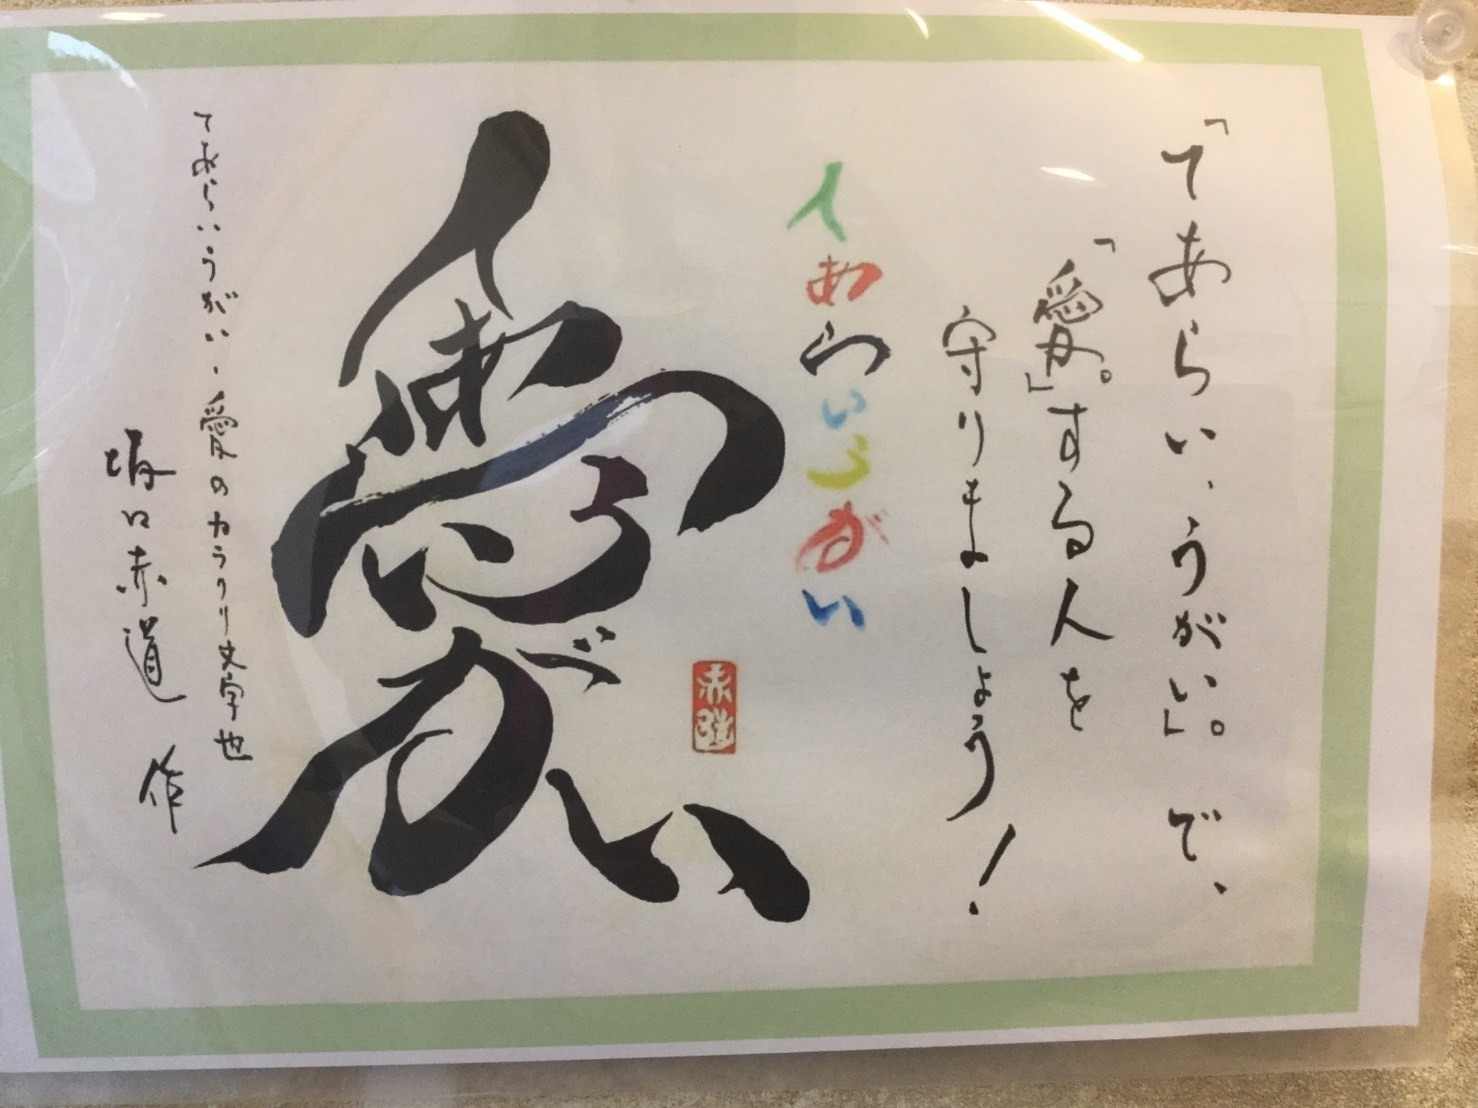 「てあらい・うがい」。で、
「愛。」する人を
守りましょう！
てあらいうがい
てあらいうがい
赤道
てあらいうがい・愛のカラクリ文字也
坂口赤道 作